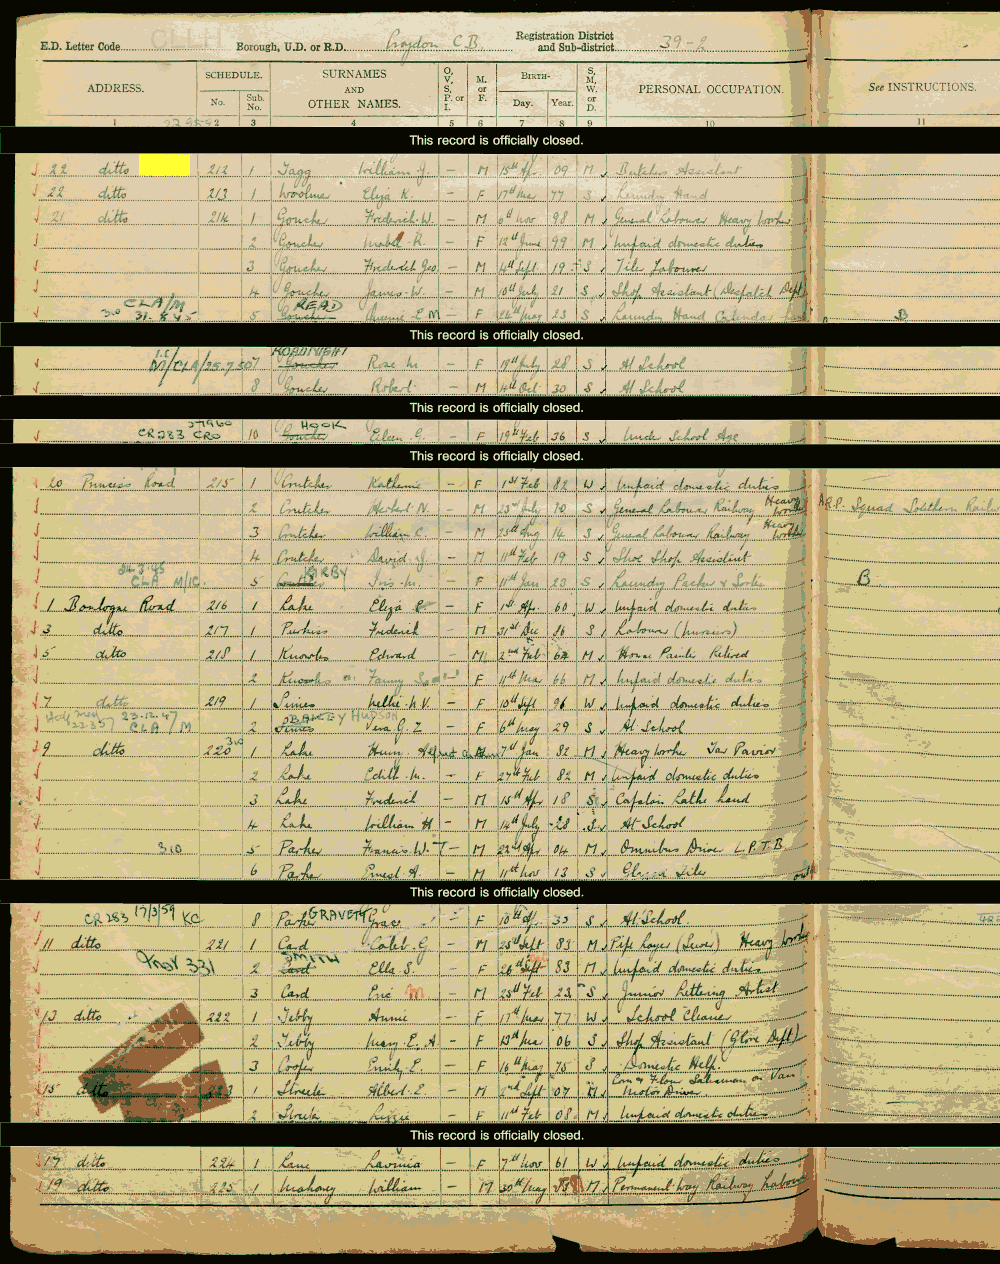 E.D. Letter Code CLLH Borough, U.D. or R.D. Croydon C.B. Registration District and Sub-district 39-2
ADDRESS. SCHEDULE. No. Sub. No. SURNAMES AND OTHER NAMES. O, V, S, P, or I. M. or F. BIRTH- Day. Year. S, M, W, or D. PERSONAL OCCUPATION. See INSTRUCTIONS.
1 2 3 4 5 6 7 8 9 10 11
This record is officially closed.
22 ditto 212 1 Tagg William J. – M 15th Apr 09 M Butchers Assistant
22 ditto 213 1 Woolmer Eliza K. – F 17th Mar 77 S Laundry Hand
21 ditto 214 1 Goucher Frederick W. – M 6th Nov 98 M General Labourer Heavy Worker
2 Goucher Mabel R. – F 12th June 99 M Unpaid domestic duties
3 Goucher Frederick Geo. – M 4th Sept 19 S Tile Labourer
4 Goucher James W. – M 10th July 21 S Shop Assistant (Despatch Dept)
CLA/M READ
310 31.8.45 5 Goucher E M – F 24th May 23 S Laundry Hand Calendar B
This record is officially closed.
M/CLA/25.7.50 7 Goucher Rose M. – F 19th July 28 S At School
8 Goucher Robert – M 14th Oct 30 S At School
This record is officially closed.
HOOK
CR283 CRO 10 Goucher Eileen G. – F 19th Feb 36 S Under School Age
This record is officially closed.
20 Princess Road 215 1 Crutcher Katherine – F 1st Feb 82 W Unpaid domestic duties
2 Crutcher Herbert N. – M 23rd July 10 S General Labourer Railway Heavy Worker A.R.P. Squad Southern Railw
3 Crutcher William C. – M 25th Aug 14 S General Labourer Railway Heavy Worker
4 Crutcher David J. – M 11th Feb 19 S Shoe Shop Assistant
CLA M/IC 5 KIRBY Iris M. – F 11th Jan 23 S Laundry Packer & Sorter B
1 Boulogne Road 216 1 Lake Eliza E – F 1st Apr. 60 W Unpaid domestic duties
3 ditto 217 1 Purkiss Frederick – M 31st Dec 86 S Labourer (Nursery)
5 ditto 218 1 Knowles Edward – M 2nd Feb 64 M House Painter Retired
2 Knowles Fanny – F 11th Mar 66 M Unpaid domestic duties
7 ditto 219 1 Simes Nellie M.V. – F 10th Sept 96 W Unpaid domestic duties
23.12.47 BAILEY HUDSON
CLA / M 2 Simes Vera G. Z – F 6th May 29 S At School
9 ditto 220 310 1 Lake 7th Jan 82 M Heavy Worker Tar Pavior
2 Lake Edith M. – F 27th Feb 82 M Unpaid domestic duties
3 Lake Frederick – M 15th Apr 18 S Capstan Lathe hand
4 Lake William H – M 14th July 28 S At School
310 5 Parker Francis W. T – M 22nd Apr 04 M Omnibus Driver L.P.T.B.
6 Parker Ernest A. – M 11th Nov 13 S Glazed Tiler
This record is officially closed.
CR 283 17/3/59 KC 8 Parker GRAVETT Grace – F 10th 33 S At School.
11 ditto 221 1 Card Caleb G – M 25th Sept 83 M Pipe Layer (Sewer) Heavy Worker
SMITH
331 2 Card Ella S. – F 26th Sept 83 M Unpaid domestic duties
3 Card Eric M. – M 25th Feb 23 S Junior Lettering Artist
13 ditto 222 1 Tebby Annie – F 17th Mar 77 W School Cleaner
2 Tebby Mary E. A – F 13th Mar 06 S Shop Assistant (Glove Dept)
3 Cooper Emily E. – F 16th May 75 S Domestic Help.
Corn & Flour Salesman on Van
15 ditto 223 1 Streeter Albert E. – M 2nd Sept 07 M Motor Driver
2 Streeter Lizzie – F 11th Feb 08 M Unpaid domestic duties
This record is officially closed.
17 ditto 224 1 Lane Lavinia – F 7th Nov 61 W Unpaid domestic duties
19 ditto 225 1 Mahony William – M 30th May M Permanent Way Railway Labourer